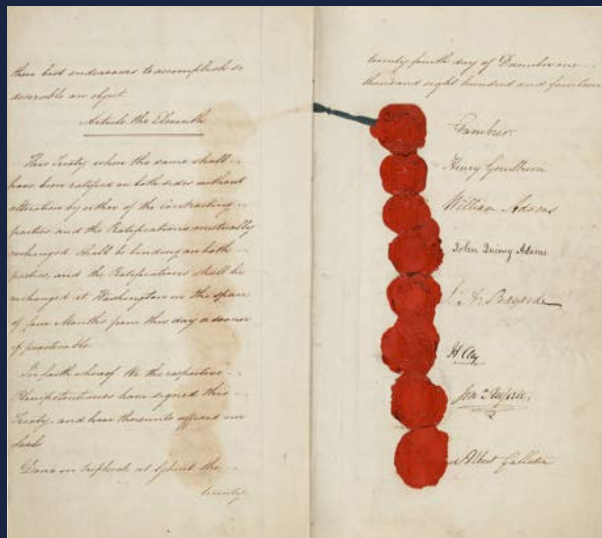 their best endeavours to accomplish so
desirable an object.
Article the Eleventh
This Treaty when the same shall
have been ratified on both sides without
alteration by either of the Contracting
parties and the Ratifications mutually
exchanged shall be binding on both
parties, and the Ratifications shall be
exchanged at Washington in the space
of four Months from this day or sooner
if practicable.
In faith whereof We the respective
Plenipotentiaries have signed this
Treaty, and have thereunto affixed our
Seals
Done in triplicate at Ghent the
twenty
twenty fourth day of December one
thousand eight hundred and fourteen
Gambier.
Henry Goulburn
William Adams
John Quincy Adams
J. A. Bayard
H Clay
Jon.a Russell.
Albert Gallatin